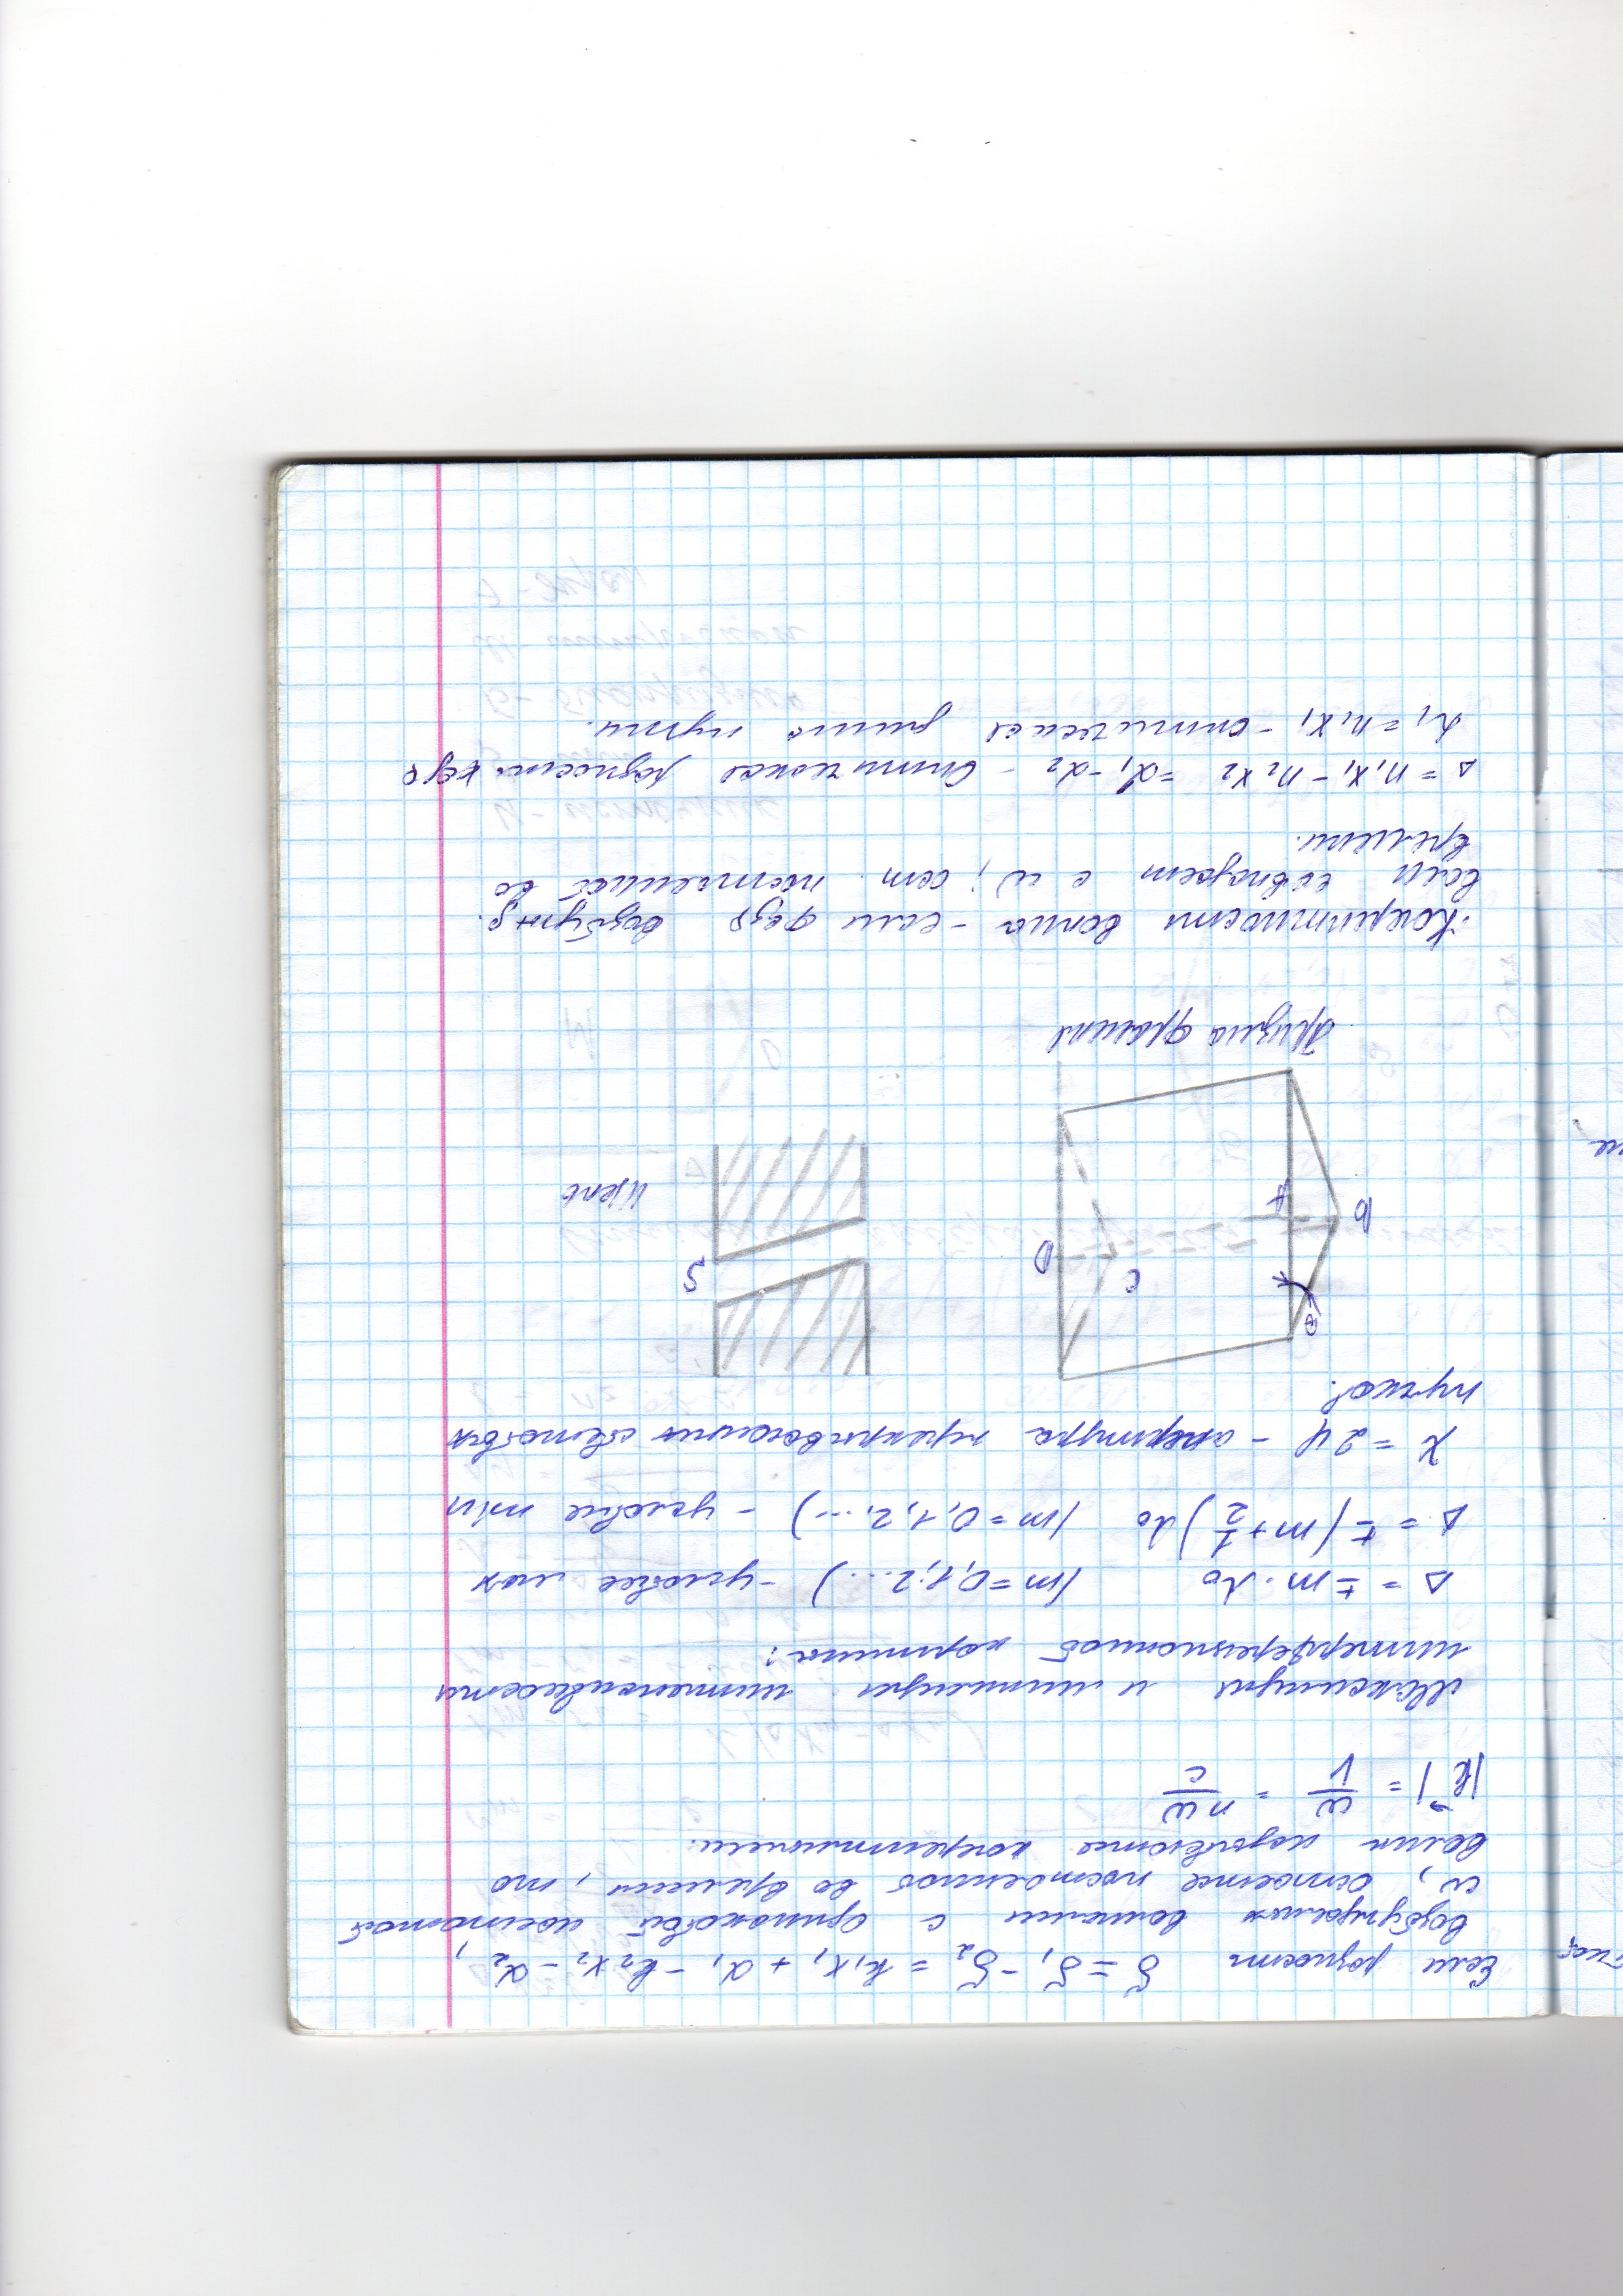 Если разность δ = δ₁ - δ₂ = k₁x₁ + α₁ - k₂x₂ - α₂,
возбуждаемых волнами с одинаковой частотой
ω, остается постоянной во времени, то
волны называются когерентными.
|k⃗| = ω/V = nω/c
Максимумы и минимумы интенсивности
интерференционной картины:
Δ = ± m · λ₀ (m = 0, 1, 2 ...) - условие max
Δ = ± (m + 1/2) λ₀ (m = 0, 1, 2, ...) - условие min
χ = 2φ - апертура перекрывающихся световых
пучков.
θ
C
D
S
B
A
Щель
Призма Френеля
Когерентность волны - если фаза возбужд.
волн совпадает с ω; ост. постоянной во
времени.
Δ = n₁x₁ - n₂x₂ = L₁ - L₂ - Оптическая разность хода
L₁ = n₁x₁ - оптическая длина пути.